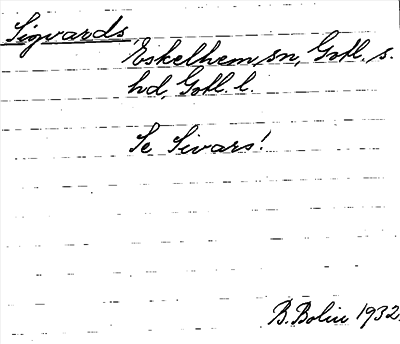 Sigvards
Eskelhem sn, Gotl. s.
hd, Gotl. l.
Se Sivars!
B. Bolin 1932.